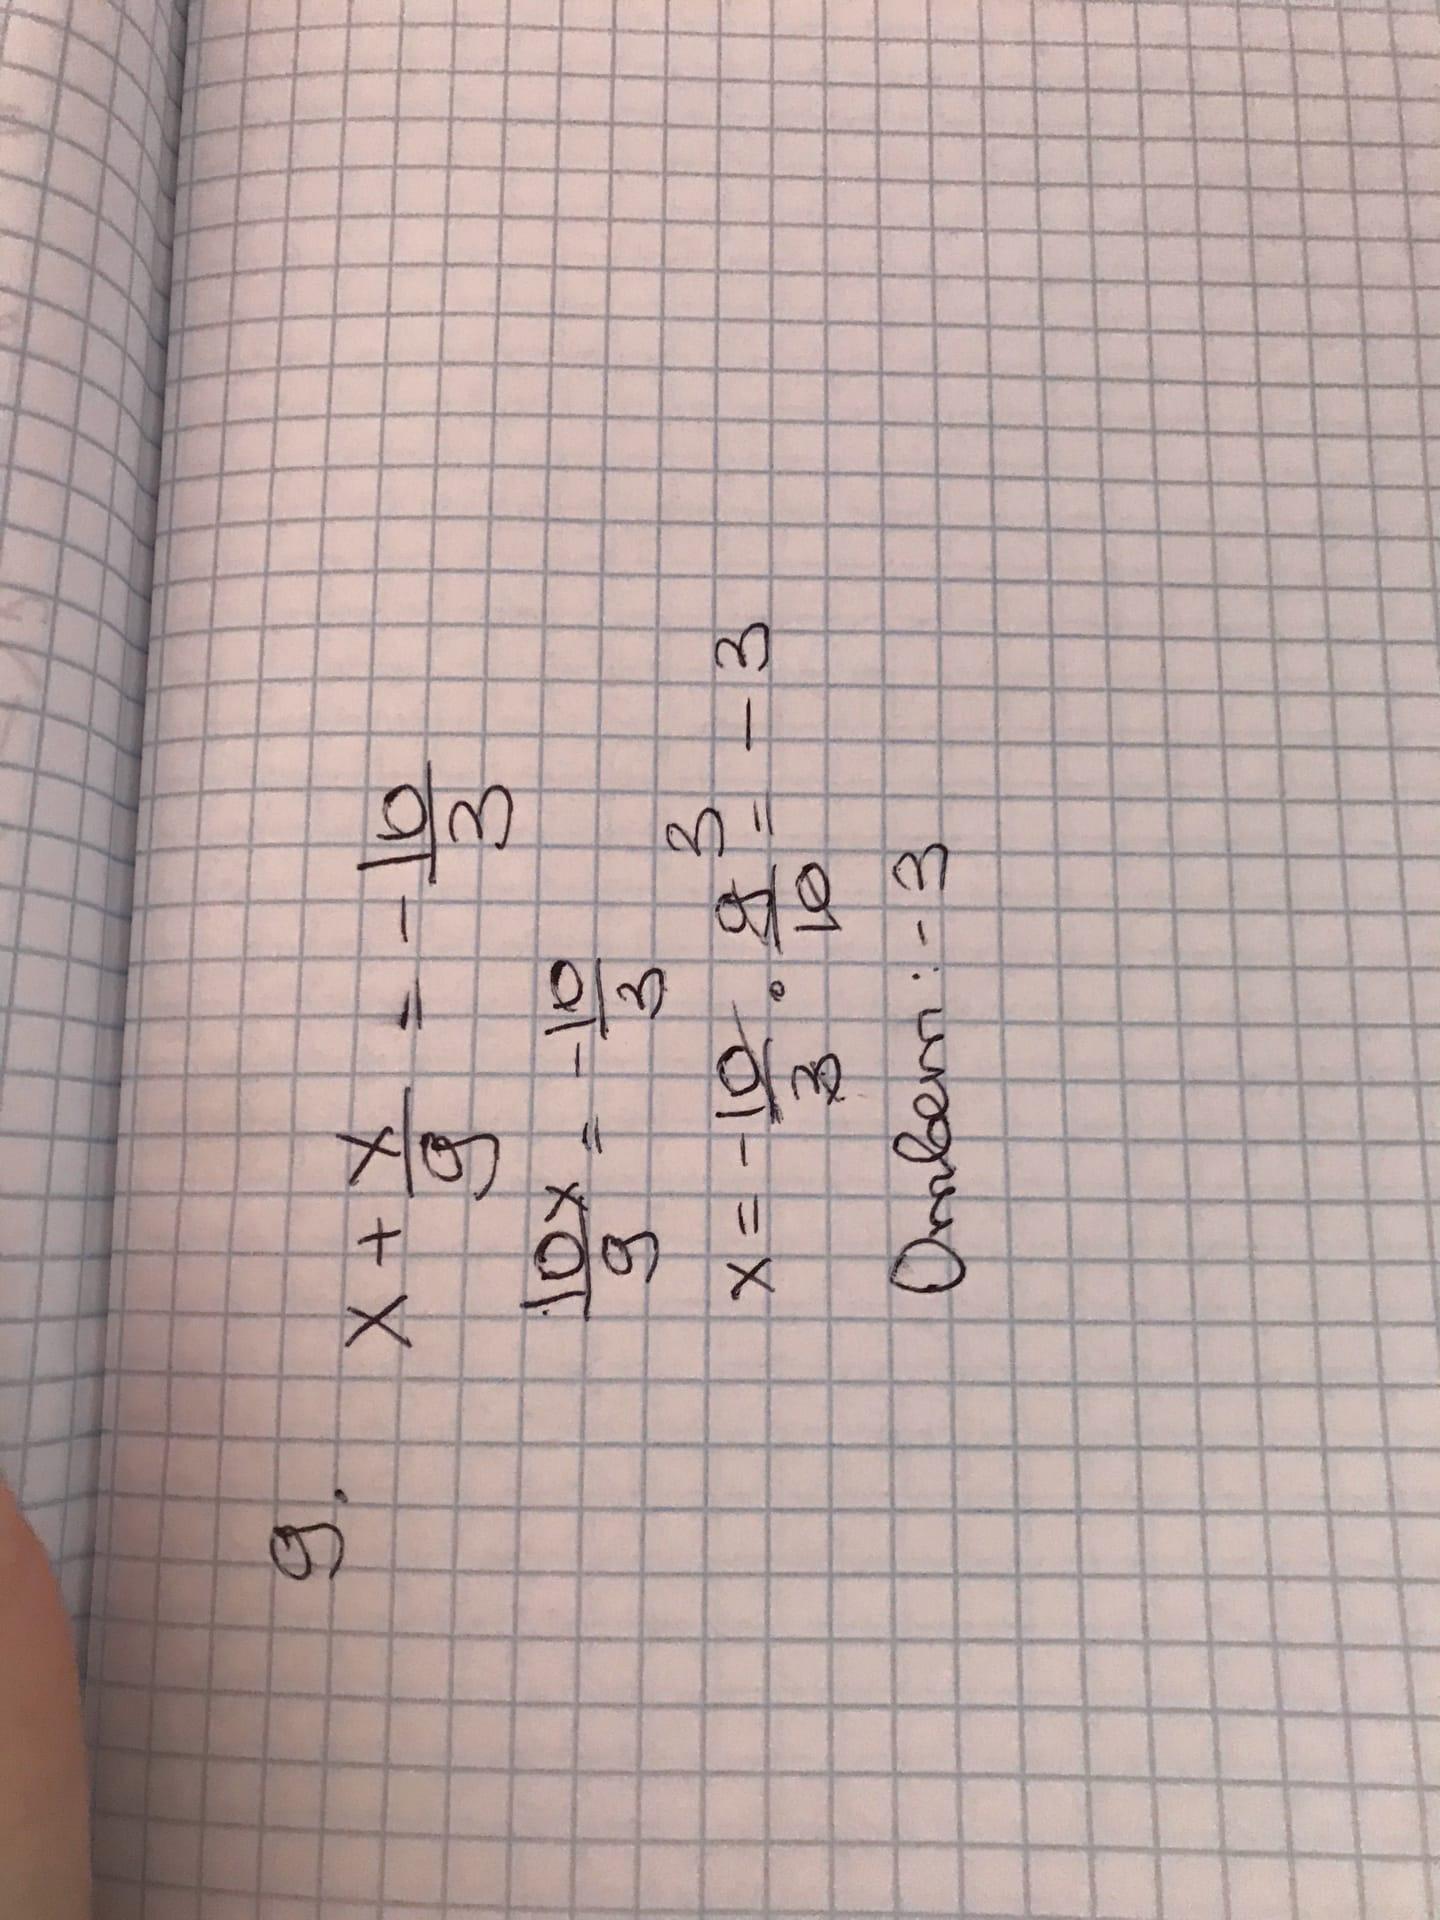 9.
x + x/9 = - 10/3
10x/9 = - 10/3
x = - 10/3 · 9/10 3 = - 3
Ответ: - 3